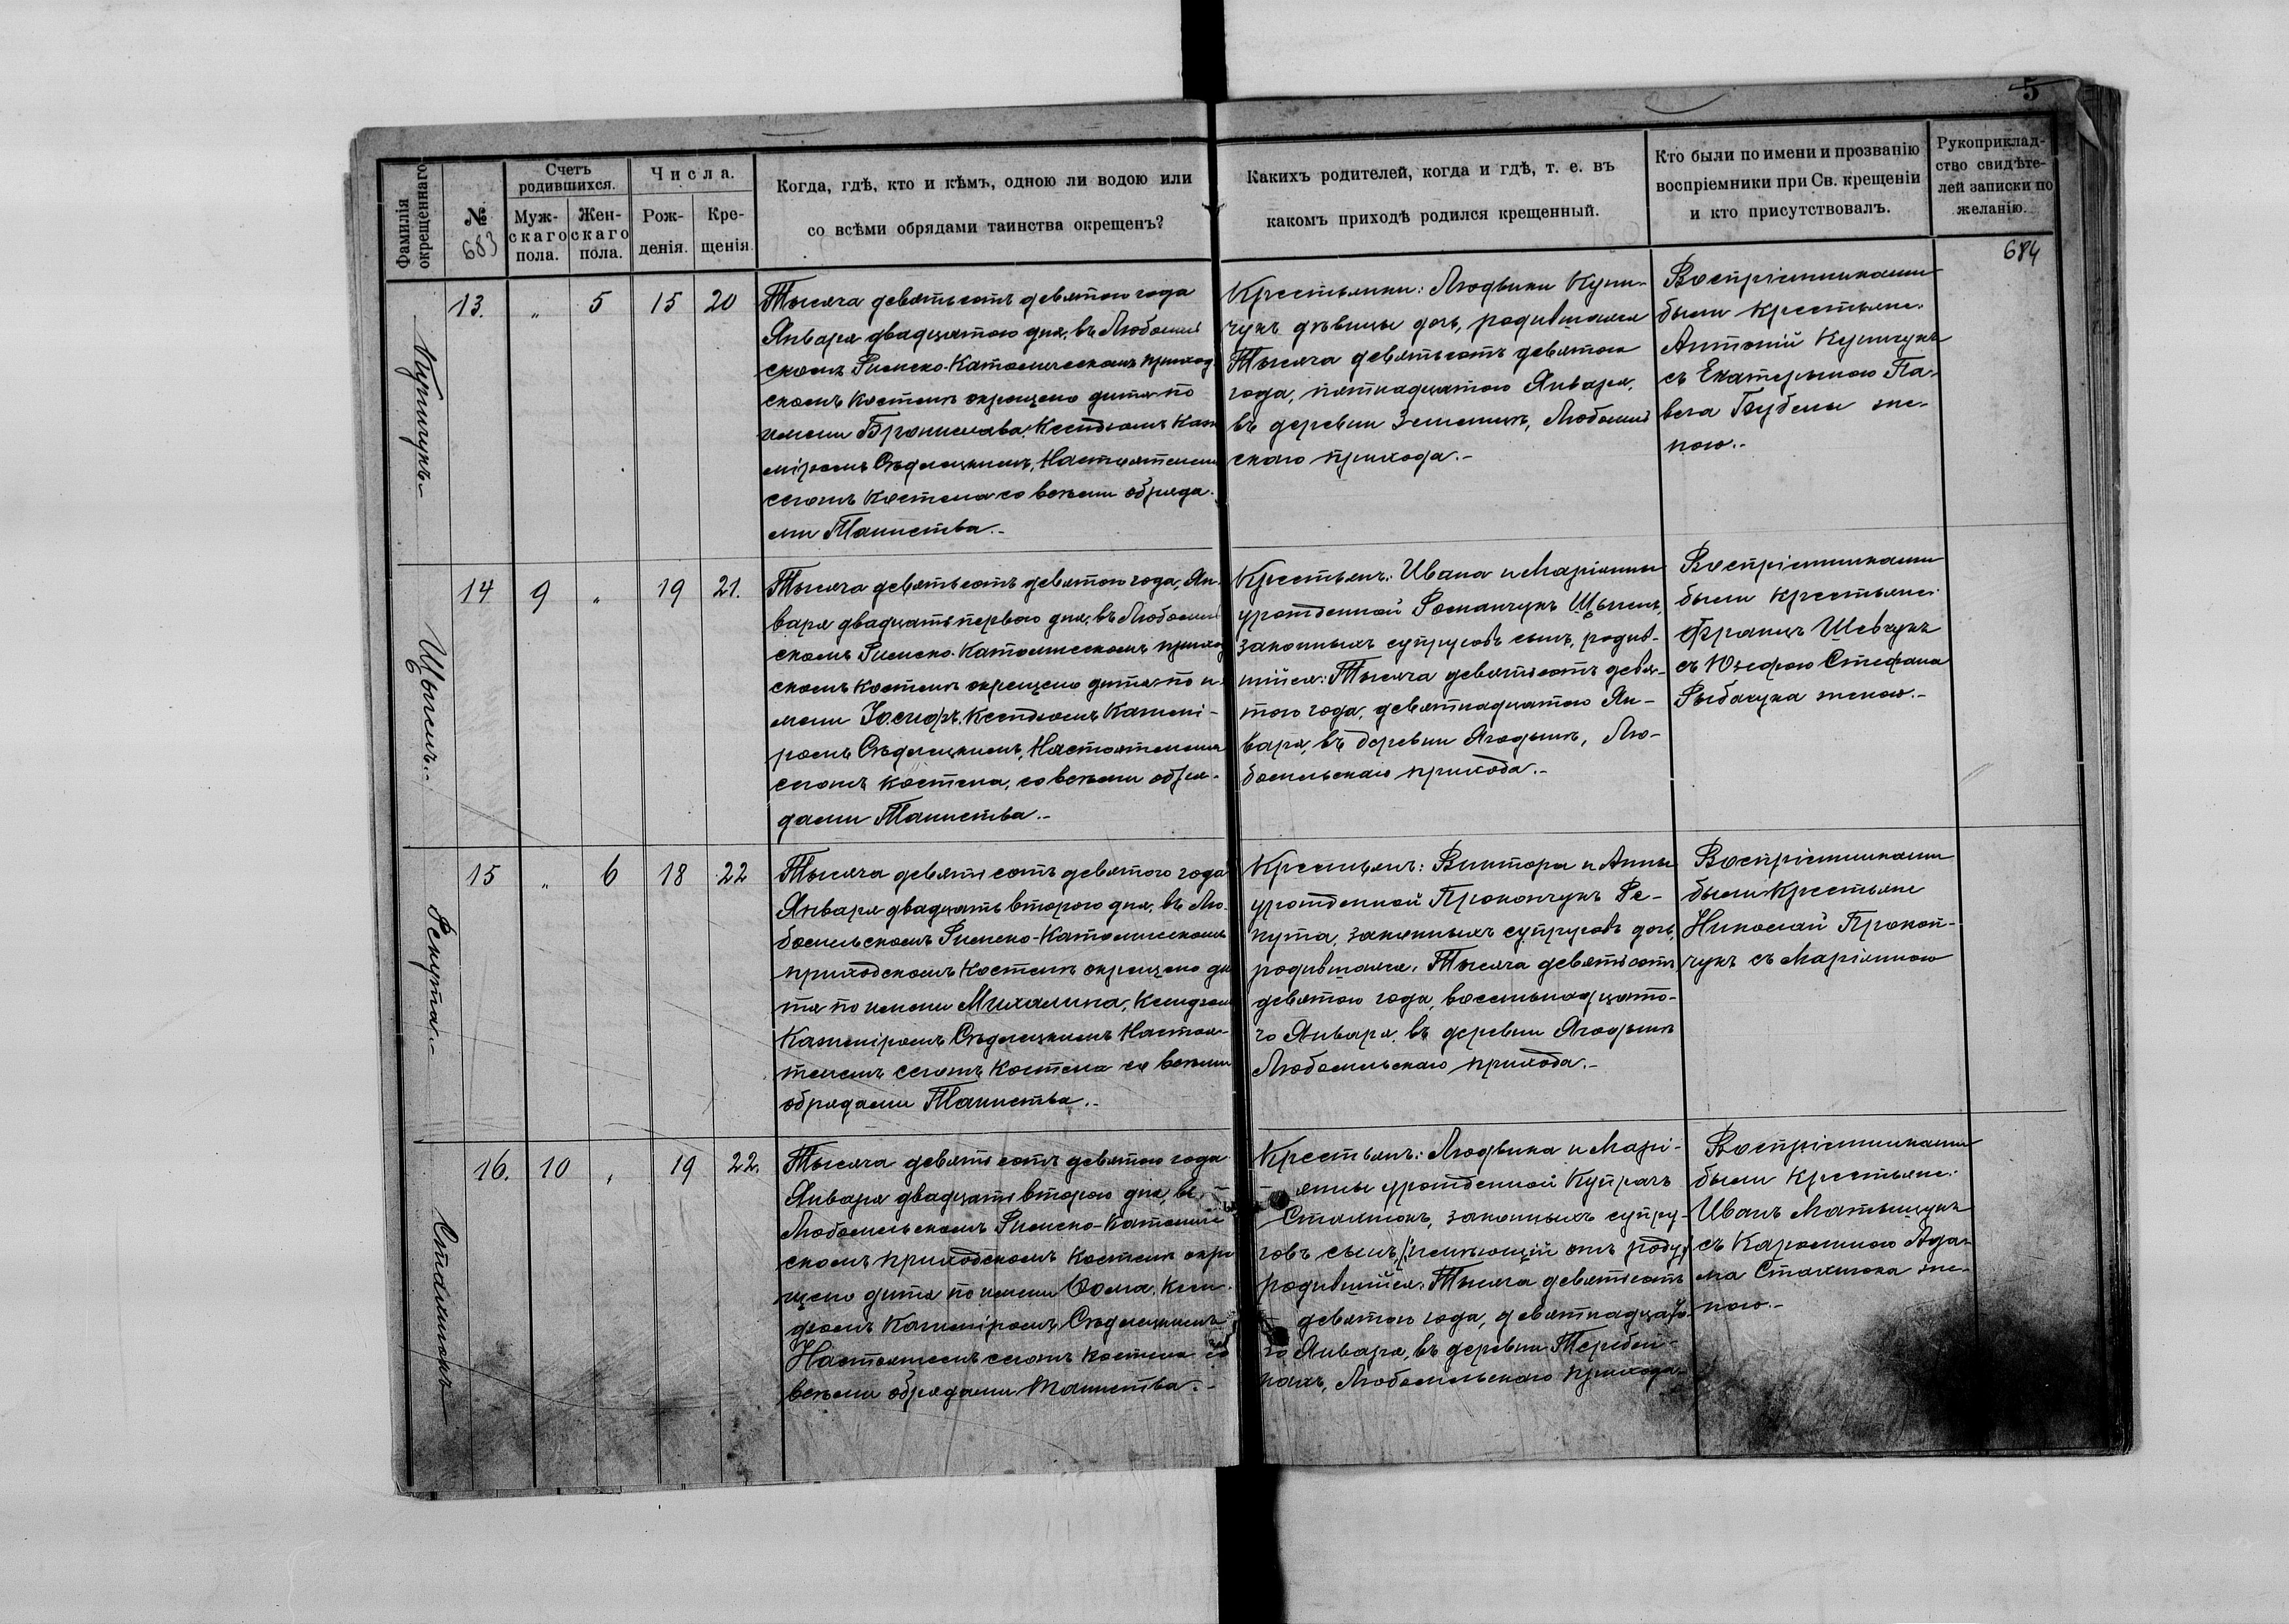 5
Фамилія окрещеннаго
№
683
Счетъ родившихся.
Муж-
скаго
пола.
Жен-
скаго
пола.
Числа.
Рож-
денія.
Кре-
щенія.
Когда, гдѣ, кто и кѣмъ, одною ли водою или
со всѣми обрядами таинства окрещенъ?
Какихъ родителей, когда и гдѣ, т. е. въ
какомъ приходѣ родился крещенный.
Кто были по имени и прозванію
воспріемники при Св. крещеніи
и кто присутствовалъ.
Рукоприклад-
ство свидѣте-
лей записки по
желанію.
684
Купичукъ
13. " 5 15 20
Тысяча девятьсотъ девятого года
Января двадцатого дня, въ Любомль
скомъ Римско-Католическомъ приход
скомъ костелѣ окрещено дитя по
имени Бронислава, Ксендзомъ Кази
міромъ Сѣдлецкимъ, Настоятелемъ
сегожъ костела со всѣми обряда-
ми Таинства.-
Крестьянки: Людвики Купи-
чукъ дѣвицы дочь, родившаяся
Тысяча девятьсотъ девятого
года, пятнадцатого Января,
въ деревни Землицѣ, Любомль
скаго прихода.-
Воспріемниками
были крестьяне:
Антоній Купичукъ
съ Екатериною Па-
вла Голубелы же-
ною.-
Цыгель
14 9 " 19 21.
Тысяча девятьсотъ девятого года, Ян-
варя двадцать первого дня, въ Любомль
скомъ Римско-Католическомъ приход
скомъ костелѣ окрещено дитя по и-
мени Іосифъ, Ксендзомъ Казимі-
ромъ Сѣдлецкимъ, Настоятелемъ
сегожъ костела, со всѣми обря-
дами Таинства.-
Крестьянъ: Ивана и Маріянны
урожденной Романчукъ Цыгель,
законныхъ супруговъ сынъ, родив-
шійся: Тысяча девятьсотъ девя-
того года, девятнадцатого Ян-
варя, въ деревни Ягодинѣ, Лю-
бомльскаго прихода.-
Воспріемниками
были крестьяне:
Францъ Шевчукъ
съ Юзефою Стефана
Рыбачука женою.-
Рекута
15 " 6 18 22
Тысяча девятьсотъ девятого года
Января двадцать второго дня, въ Лю-
бомльскомъ Римско-Католическомъ
приходскомъ костелѣ окрещено ди
тя по имени Михалина, Ксендзомъ
Казиміромъ Сѣдлецкимъ Настоя-
телемъ сегожъ костела со всѣми
обрядами Таинства.-
Крестьянъ: Виктора и Анны
урожденной Прокопчукъ Ре-
кута, законныхъ супруговъ дочь,
родившаяся, Тысяча девятьсотъ
девятого года, восемьнадцато-
го Января, въ деревни Ягодинѣ
Любомльскаго прихода.-
Воспріемниками
были крестьяне
Николай Прокоп-
чукъ съ Маріянною
Стахнюкъ
16. 10 " 19 22.
Тысяча девятьсотъ девятого года
Января двадцать второго дня, въ
Любомльскомъ Римско-Католиче
скомъ приходскомъ костелѣ окре
щено дитя по имени Ѳома, Ксен-
дзомъ Казиміромъ Сѣдлецкимъ
Настоятелемъ сегожъ костела со
всѣми обрядами Таинства.-
Крестьянъ: Людвика и Марі-
янны урожденной Купрачъ
Стахнюкъ, законныхъ супру-
говъ сынъ,
родившійся. Тысяча девятьсотъ
девятого года, девятнадцато-
го Января, въ деревни Теребей-
кахъ, Любомльскаго прихода
Воспріемниками
были крестьяне:
Иванъ Матыщукъ
съ Каролиною Ада-
ма Стахнюка же-
ною.-